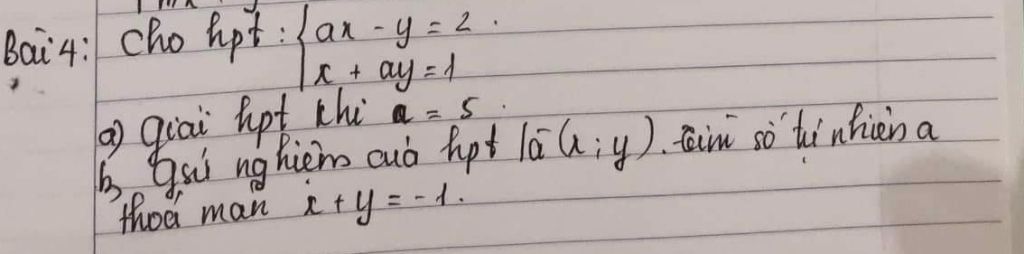 Bài 4: Cho hpt: { ax - y = 2.
x + ay = 1
a) giải hpt khi a = 5.
b, gsử nghiệm của hpt là (x; y). tìm số tự nhiên a
thoả mãn x + y = -1.